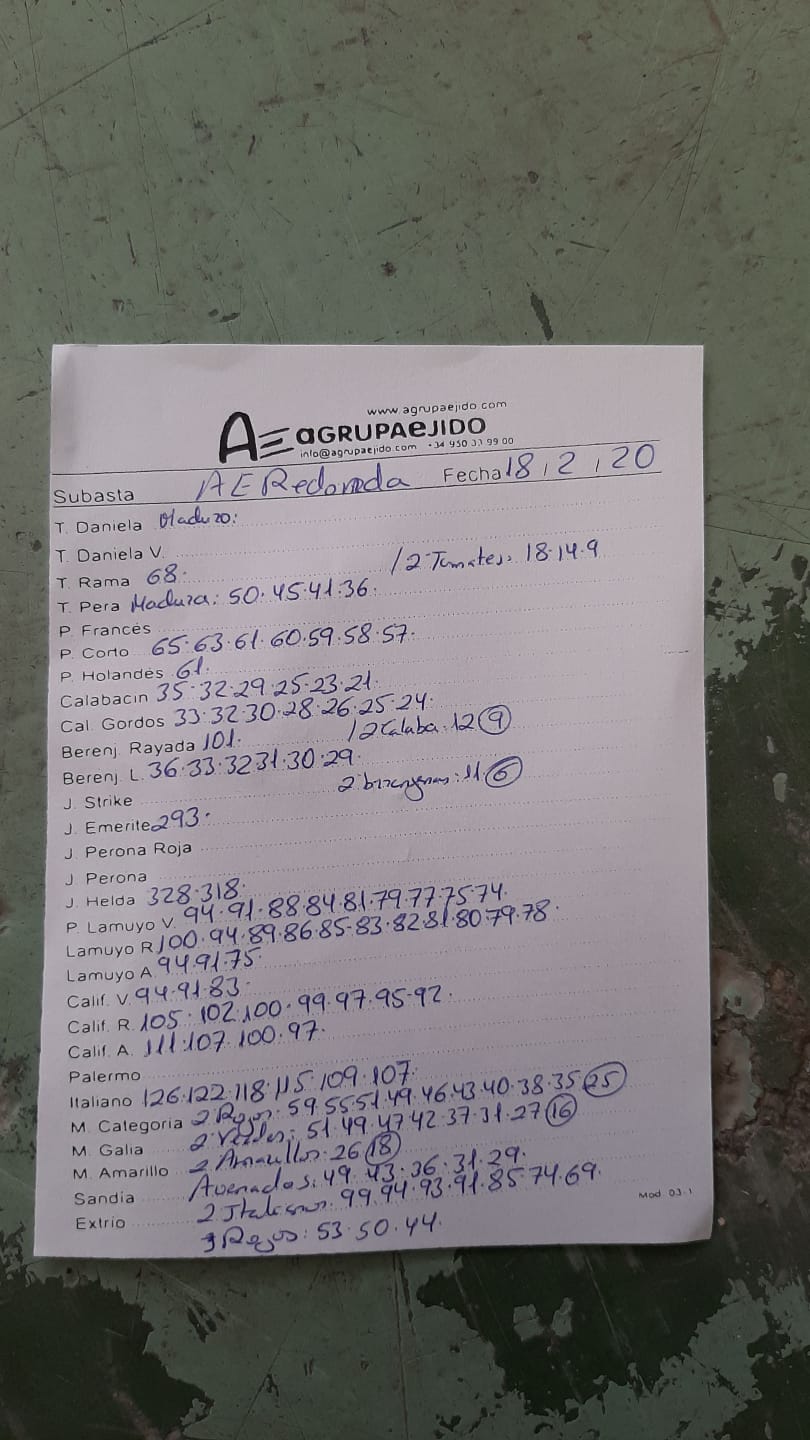 www.agrupaejido.com
AE aGRUPAeJIDO
info@agrupaejido.com +34 950 33 99 00
Subasta AE Redonda Fecha 18 / 2 / 20
T. Daniela Maduro:
T. Daniela V.
T. Rama 68. / 2 Tomates: 18.14.9
T. Pera Madura: 50.45.41.36.
P. Francés
P. Corto 65.63.61.60.59.58.57.
P. Holandés 61.
Calabacin 35.32.29.25.23.21.
Cal. Gordos 33.32.30.28.26.25.24.
Berenj. Rayada 101. / 2 Calaba: 12 9
Berenj. L. 36.33.32.31.30.29.
J. Strike 2 berenjenas: 11 6
J. Emerite 293.
J. Perona Roja
J. Perona
J. Helda 328.318.
P. Lamuyo V. 94.91.88.84.81.79.77.75.74.
Lamuyo R 100.94.89.86.85.83.82.81.80.79.78.
Lamuyo A 94.91.75.
Calif. V. 94.91.83.
Calif. R. 105.102.100.99.97.95.92.
Calif. A. 111.107.100.97.
Palermo
Italiano 126.122.118.115.109.107.
M. Categoria 2 Rojos: 59.55.51.49.46.43.40.38.35 25
M. Galia 2 Verdes: 51.49.47.42.37.31.27 16
M. Amarillo 2 Amarillos: 26 18
Sandía Asenados: 49.43.36.31.29.
Extrio 2 Italianos: 99.94.93.91.85.74.69.
3 Rojos: 53.50.44.
Mod. 03.1